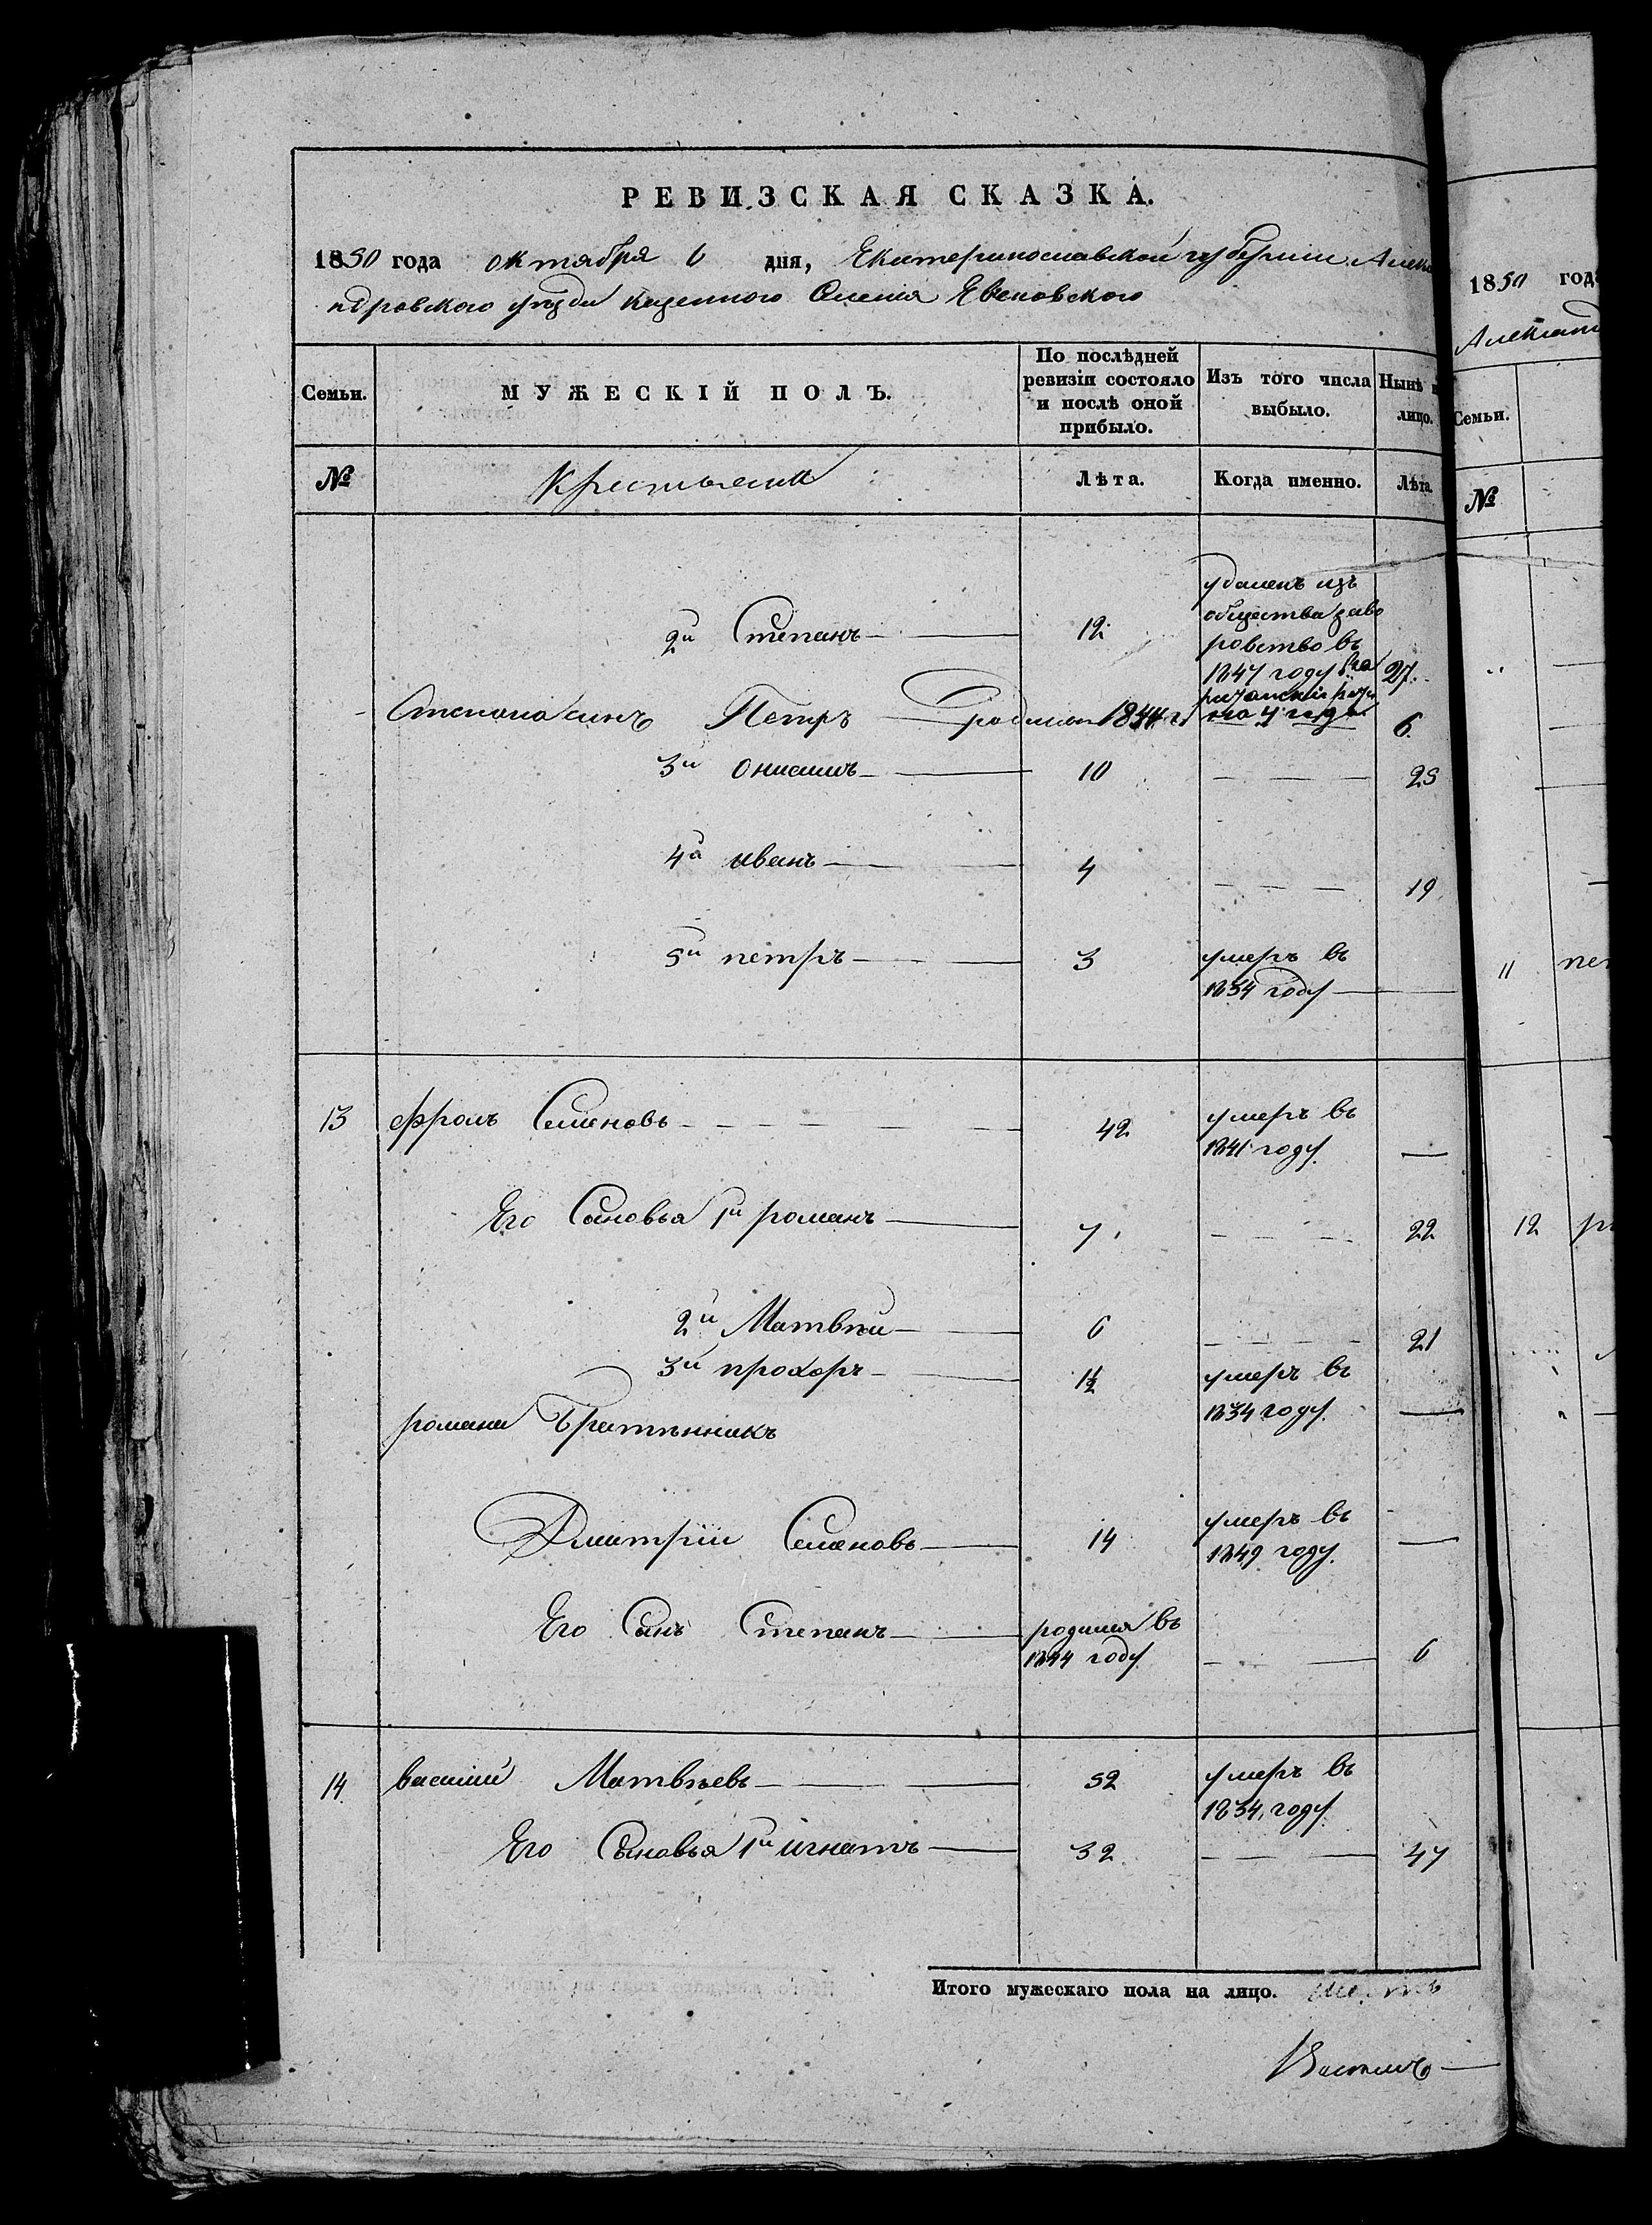 РЕВИЗСКАЯ СКАЗКА.
1850 года октября 6 дня, Екатеринославской губернии Алекса
ндровского уезда казенного Селения Евсковского
Семьи.
МУЖЕСКІЙ ПОЛЪ.
По послѣдней ревизіи состояло и послѣ оной прибыло.
Изъ того числа выбыло.
Нынѣ
лицо.
№
Крестьяне
Лѣта.
Когда именно.
Лѣта.
2й Степанъ 12
удаленъ изъ
общества за во
ровство въ
1847 году на 27.
Степана синъ Петръ родился 1844 г 6.
3й Онисимъ 10 25
4й иванъ 4 19
5й петръ 3 умеръ въ
1834 году
13 Фролъ Семеновъ 42 умеръ въ
1841 году
Его Сыновья 1й романъ 7 22
2й Матвѣй 6 21
3й прохоръ 1½ умеръ въ
1834 году
романа Братанникъ
Дмитрій Семеновъ 14 умеръ въ
1849 году.
Его Сынъ Степанъ родился въ
1844 году 6
14 василій Матвѣевъ 52 умеръ въ
1834 году
Его Сыновья 1й игнатъ 32 47
Итого мужескаго пола на лицо.
1850 года
Александ
Семьи.
№
11
12